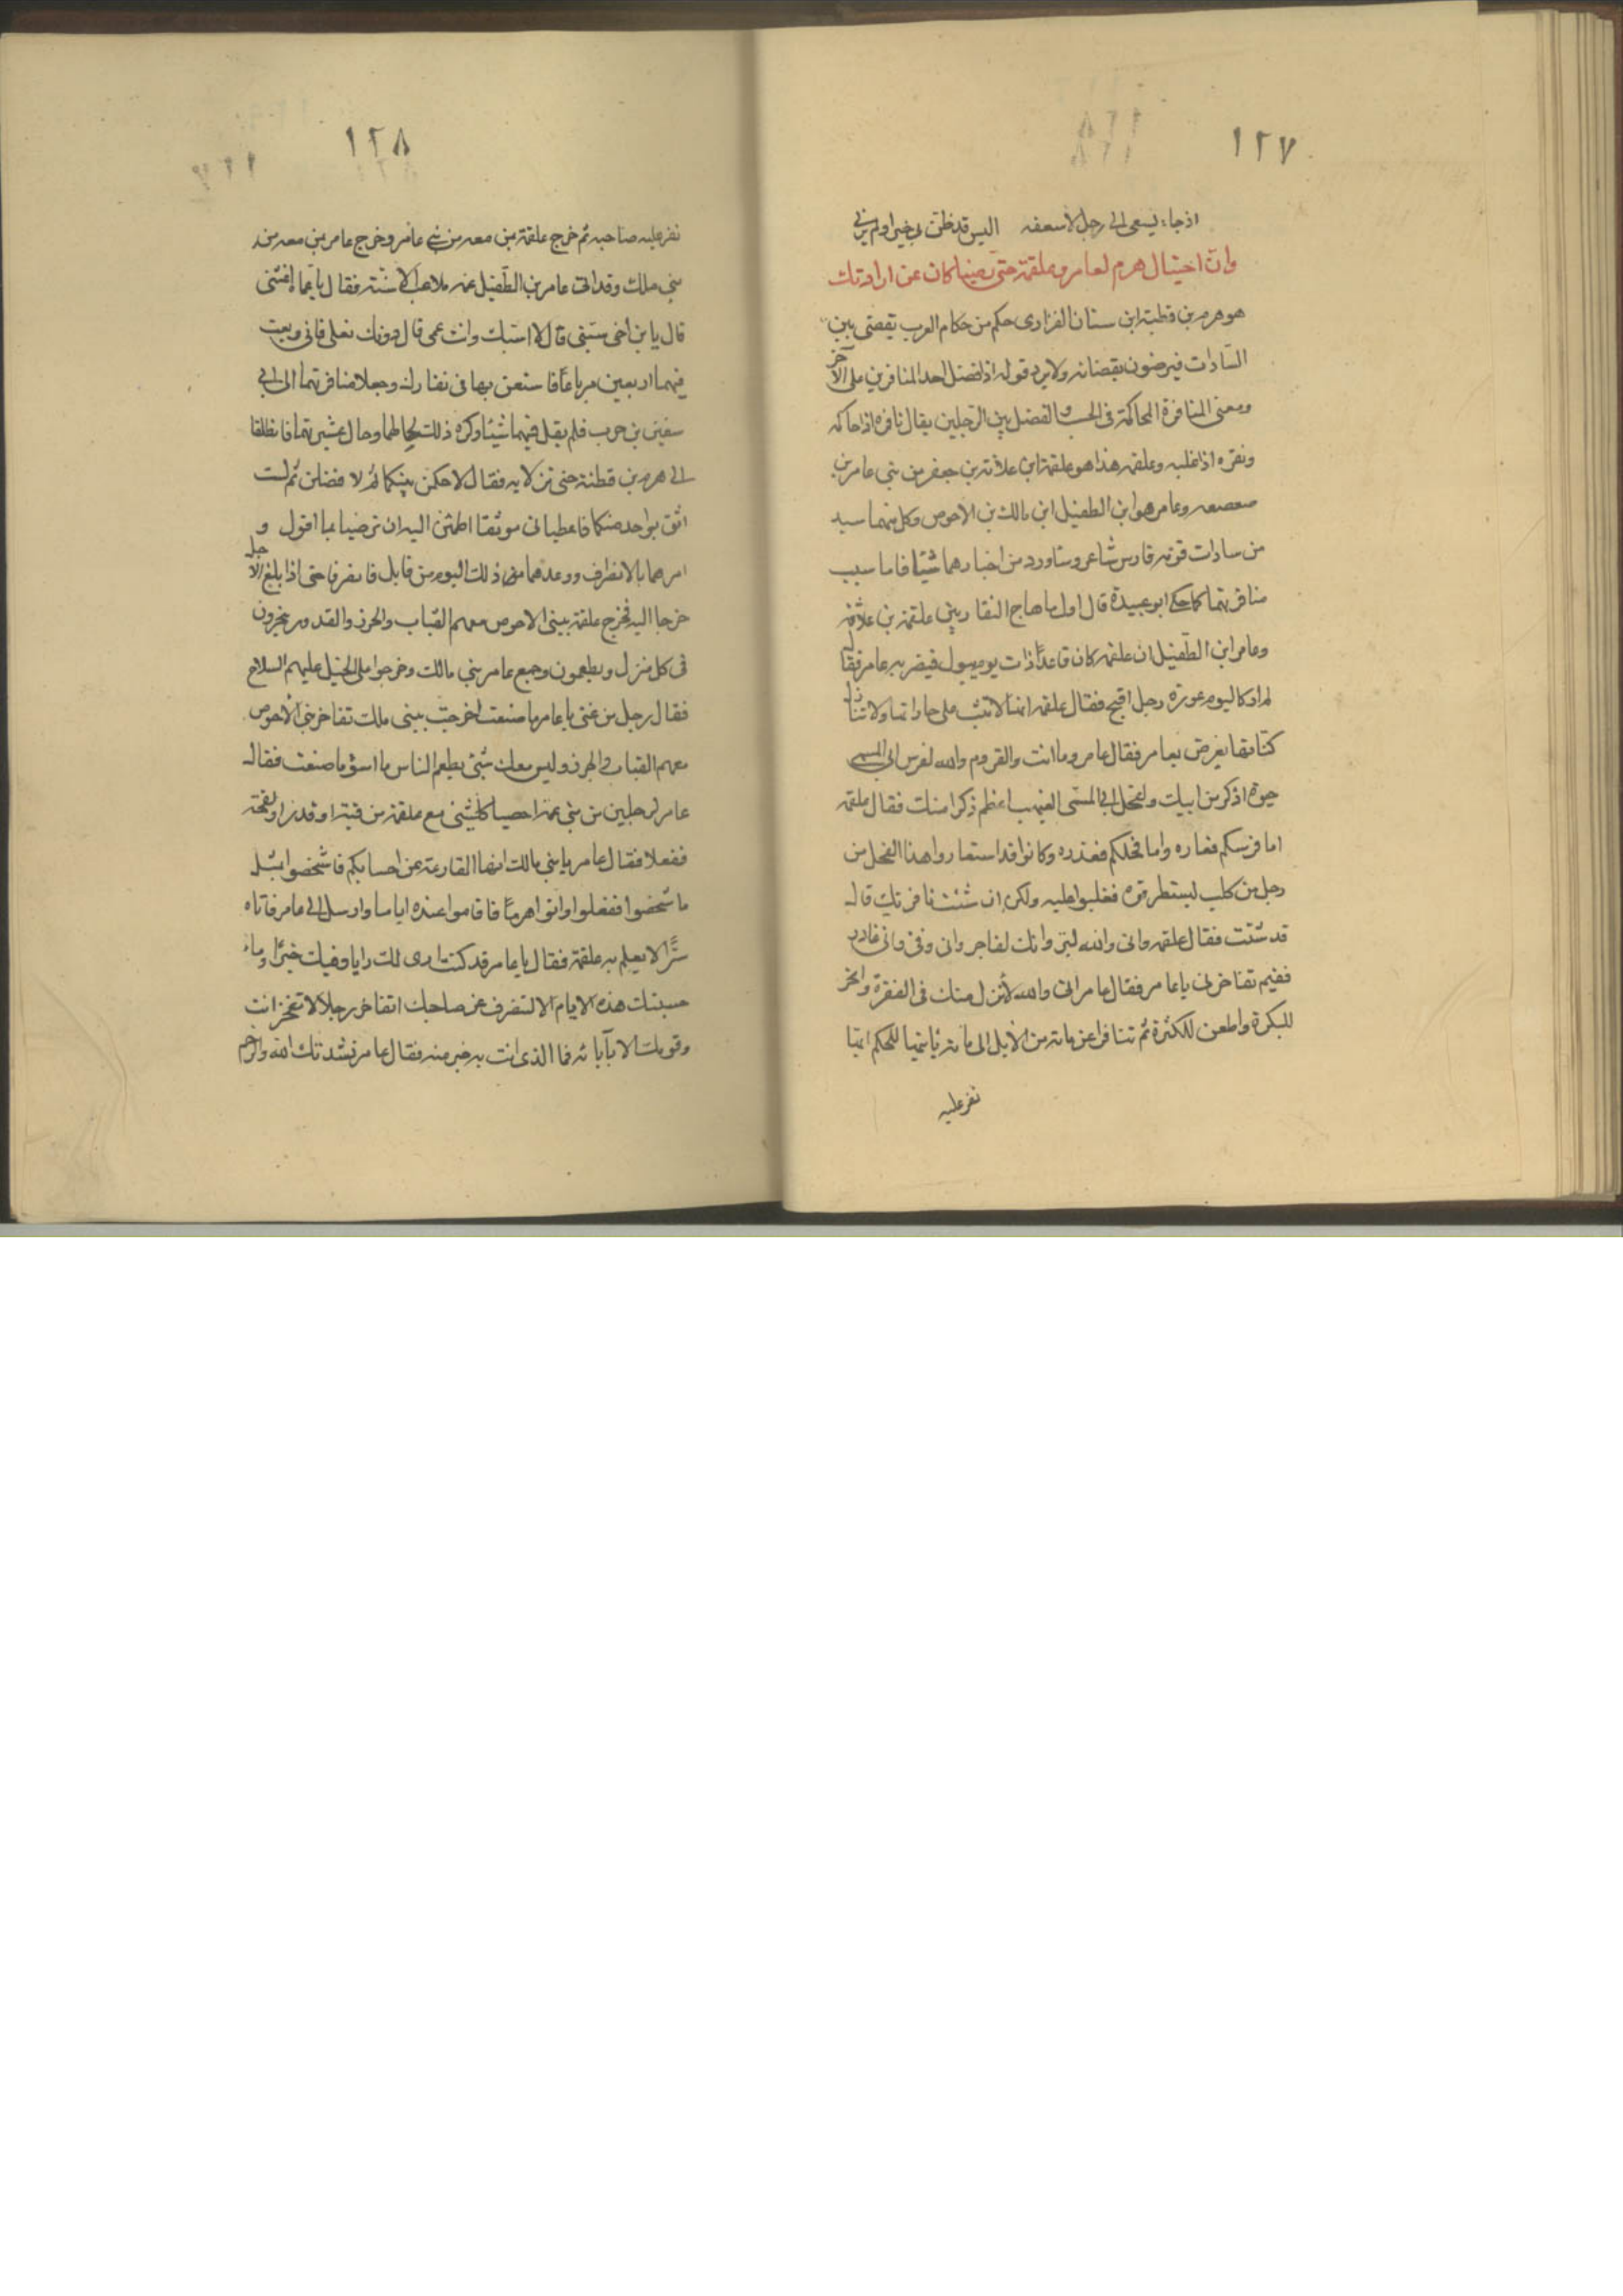 ١٢٧
اذ جاء يسعى الى رجل لاسعفه اليس قد ظن بى خيرا ولم يرنى
وان احتيال هرم لعامر وعلقمة حتى رضيا كان عن ارادتك
هو هرم بن قطبة ابن سنان الفزارى حكم من حكام العرب يقضى بين
السادات فيرضون بقضائه ولا يرد قوله اذا فضل احد المنافرين على الآخر
ومعنى المنافرة المحاكمة فى الحسب والفضل بين الرجلين يقال نافره اذا حاكمه
ونفره اذا غلبه وعلقمه هذا هو علقمة ابن علاثة بن جعفر من بنى عامر بن
صعصعه وعامر هو ابن الطفيل ابن مالك بن الاحوص وكل منهما سيد
من سادات قومه فارس شاعر وساورد من اخبارهما شيئا فاما سبب
منافرتهما كما حكى ابو عبيدة قال اول ما هاج النفار بين علقمة بن علاثه
وعامر ابن الطفيل ان علقمه كان قاعدا ذات يوم يبول فبصر به عامر فقال
لم ار كاليوم عورة رجل اقبح فقال علقمه انها لا تثب على جاراتها ولا تنازل
كناتها يعرض بعامر فقال عامر وما انت والقروم والله لفرس ابى المسمى
حيوة اذكر من ابيك ولفحل ابى المسمى الغيهب اعظم ذكرا منك فقال علقمه
اما فرسكم فعاره واما فحلكم فغدره وكانوا قد استعاروا هذا الفحل من
رجل من كلب ليستطرقوه فغلبوا عليه ولكن ان شئت نافرتك قال
قد شئت فقال علقمه وانى والله لبر وانك لفاجر وانى وفى وانى غادر
ففيم تفاخرنى يا عامر فقال عامر انى والله لأنزل منك فى القفرة وانحر
للبكرة واطعن للكثرة ثم تنافرا عن مائة من الابل الى مائة ياتيها للحكم ايهما
نفر عليه
١٢٨
نفر عليه صاحبه ثم خرج علقمة بمن معه من بنى عامر وخرج عامر بمن معه من
بنى ملك وقد اتى عامر بن الطفيل عمه ملاعب الاسنة فقال يا عماه اغثنى
قال يا بن اخى سبنى قال لا اسبك وانت عمى قال دونك نعلى فانى ربعت
فيهما اربعين مرباعا فاستعن بها فى نفارك وجعلا منافرتهما الى ابى
سفين بن حرب فلم يقل فيهما شيئا وكره ذلك لحالهما وحال عشيرتهما فانطلقا
الى هرم بن قطنة حتى نزلا به فقال لاحكمن بينكما ثم لا فضلن ثم لست
اثق بواحد منكما فاعطيانى موثقا اطمئن اليه ان ترضيا بما اقول و
امرهما بالانصراف ووعدهما من ذلك اليوم من قابل فانصرفا حتى اذا بلغ الاجل
خرجا اليه فخرج علقمة ببنى الاحوص معهم القباب والجزر والقدور ينحرون
فى كل منزل ويطعمون وجمع عامر بنى مالك وخرجوا على الخيل عليهم السلاح
فقال رجل من غنى يا عامر ما صنعت اخرجت ببنى ملك تفاخر بنى الاحوص
معهم القباب والجزر وليس معك شئ يطعم الناس ما اسوء ما صنعت فقال
عامر لرجلين من بنى عمه احصيا كل شئ مع علقمة من قبة او قدر او لقحة
ففعلا فقال عامر يا بنى مالك انها القارعة عن احسابكم فاشخصوا بمثل
ما شخصوا ففعلوا واتوا هرما فاقاموا عنده اياما وارسل الى عامر فاتاه
سرا لا يعلم به علقمة فقال يا عامر قد كنت ارى لك رايا وفيك خيرا وما
حسبتك هذه الايام الا لتنصرف عن صاحبك اتفاخر رجلا لا تفخر انت
وقومك الا بآبائه فما الذى انت به خير منه فقال عامر نشدتك الله والرحم